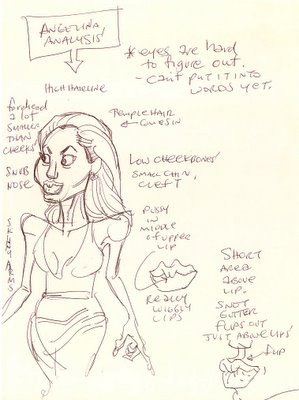 ANGELINA
ANALYSIS
* eyes are hard
to figure out.
- can't put it into
words yet.
HIGH HAIRLINE
forehead
a lot
smaller
THAN
CHEEKS
TEMPLE HAIR
GOES IN
SNUB
NOSE
LOW CHEEKBONES
SMALL CHIN,
CLEFT
SKINNY ARMS
IN
MIDDLE
of UPPER
LIP
REALLY
WIGGLY
LIPS
SHORT
AREA
ABOVE
LIP.
SNOT
GUTTER
FLIPS OUT
JUST ABOVE LIPS
FLIP